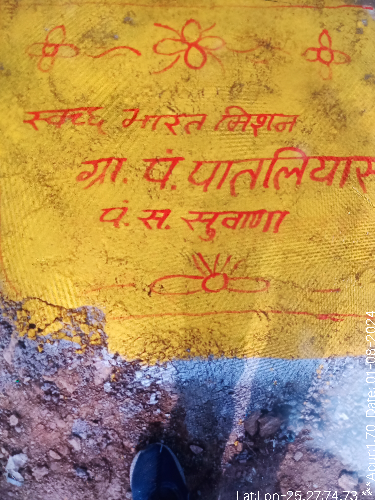 स्वच्छ भारत मिशन
ग्रा. पं. पातलियास
पं. स. सुवाणा
Lat Lon-25.27,74.73
Date 01-08-2024